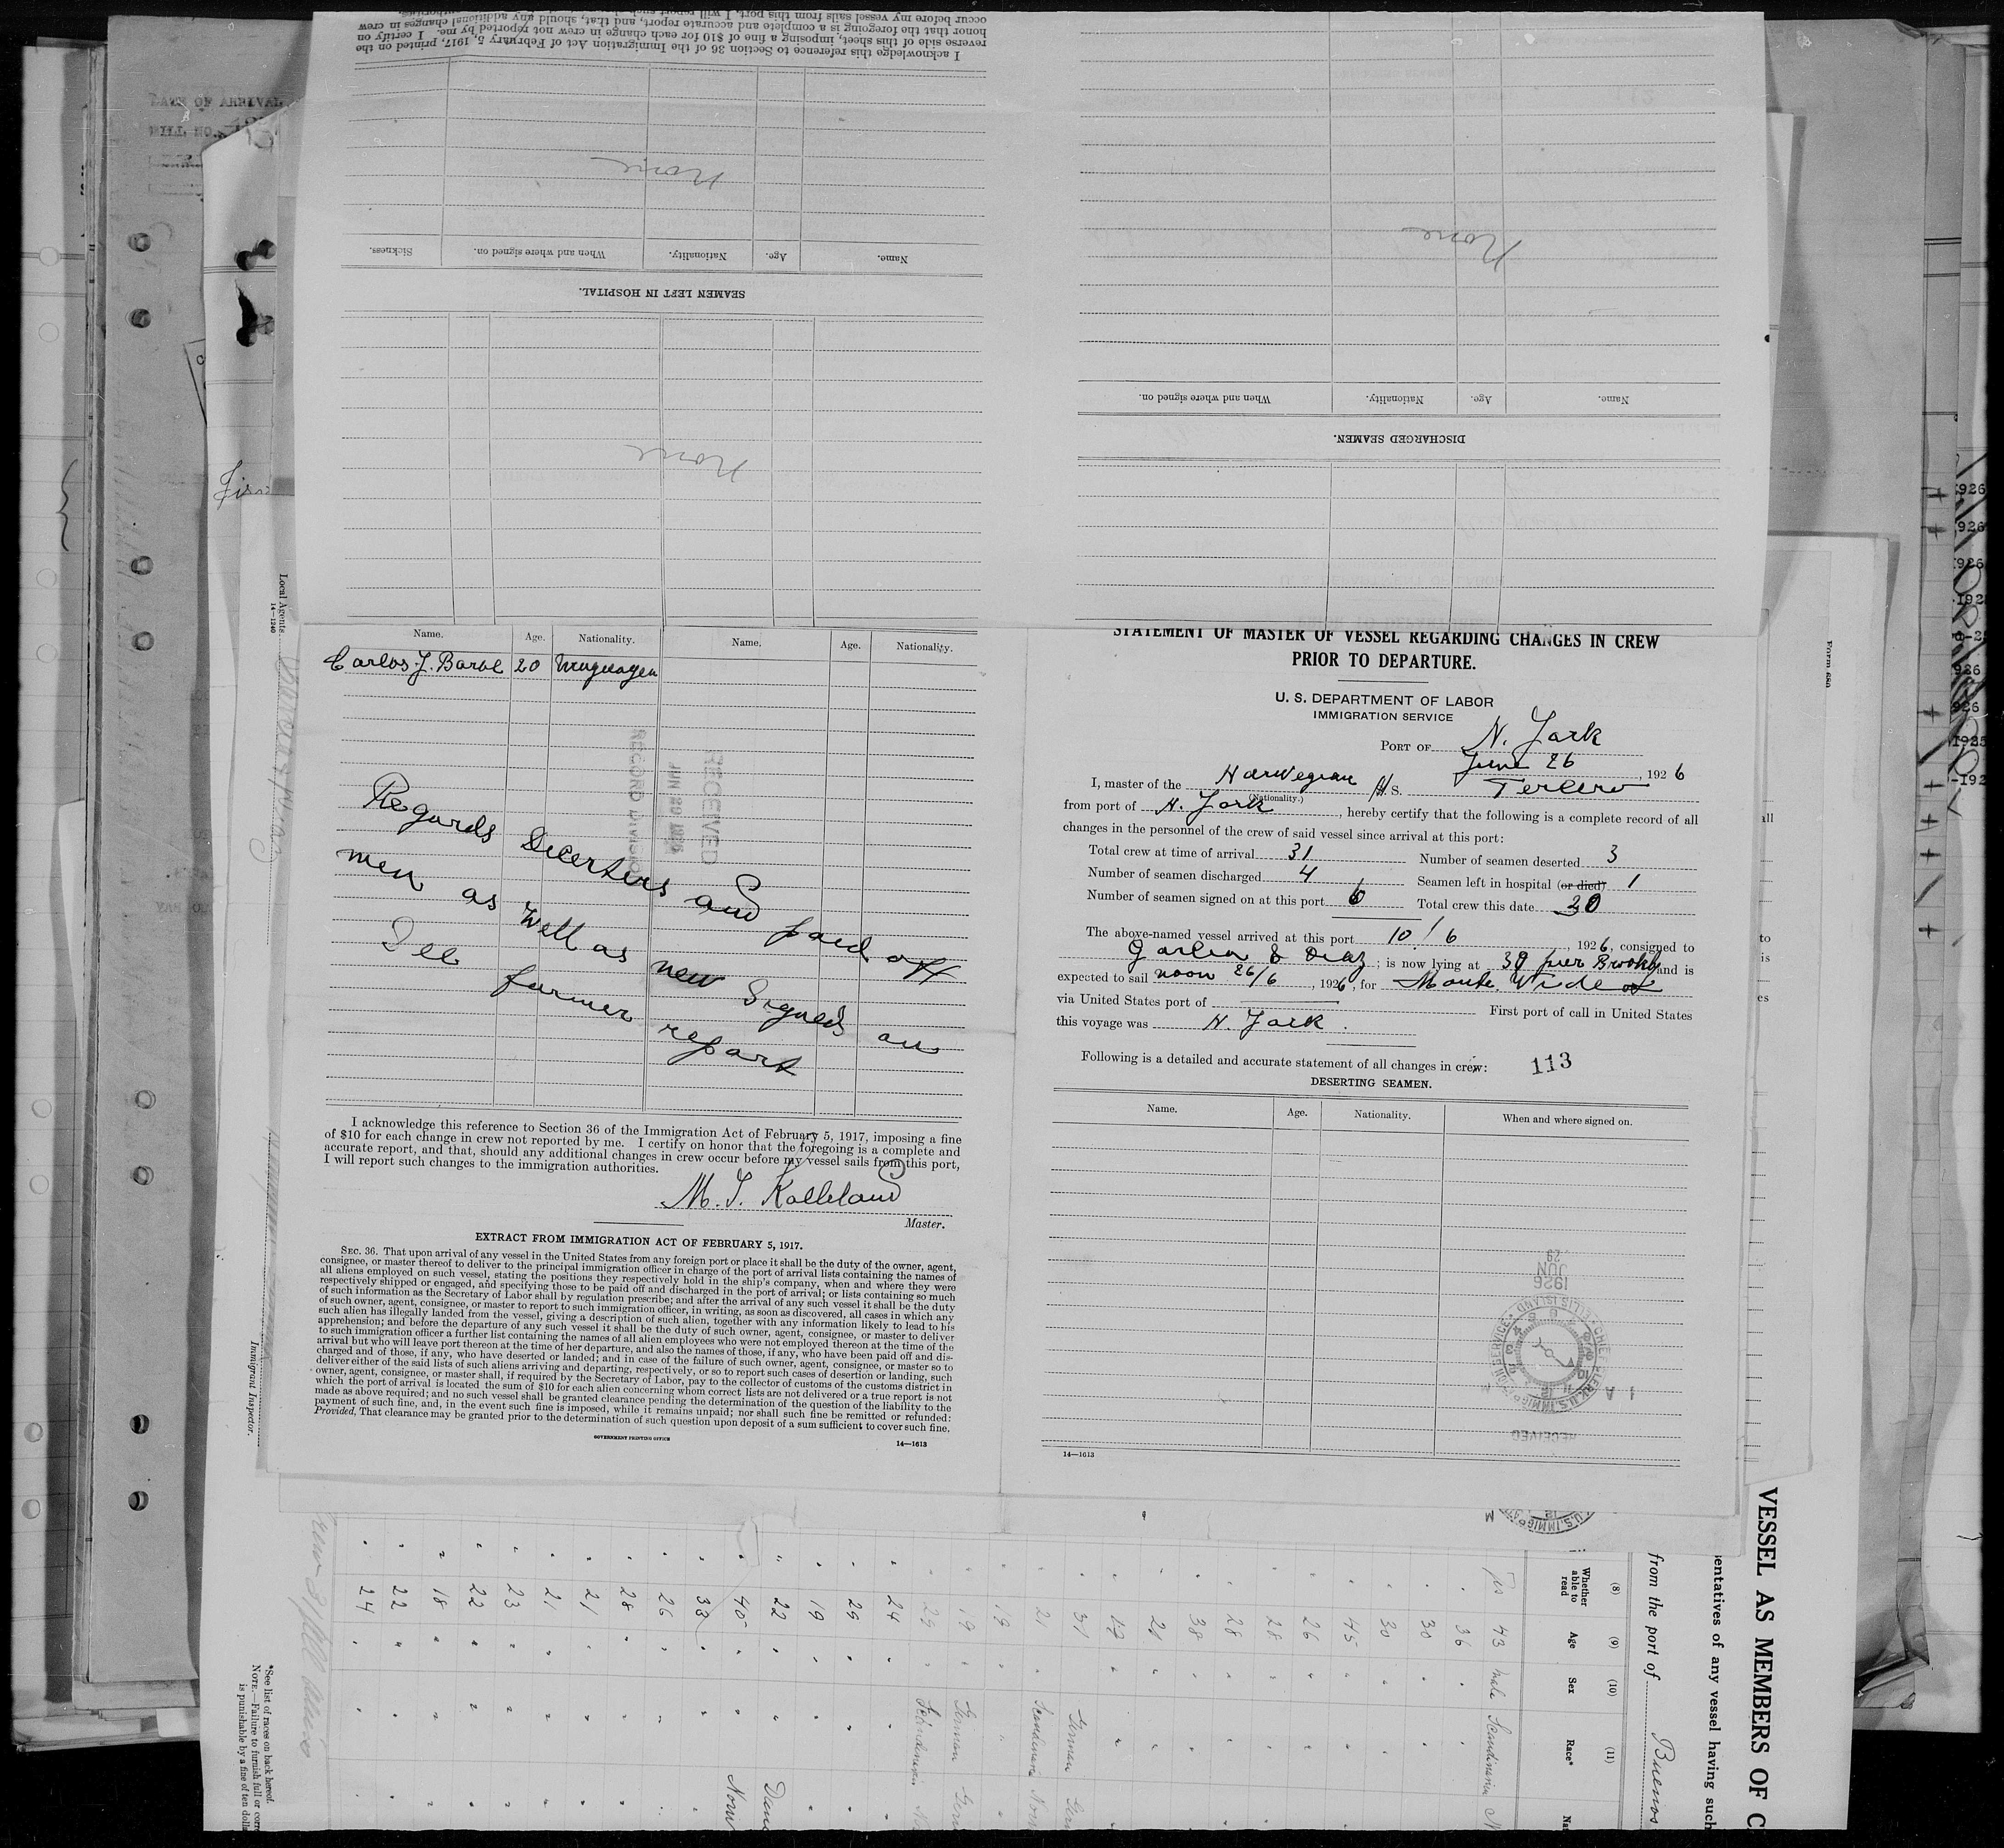 I acknowledge this reference to Section 36 of the Immigration Act of February 5, 1917, printed on the
reverse side of this sheet, imposing a fine of $10 for each change in crew not reported by me. I certify on
honor that the foregoing is a complete and accurate report, and that, should any additional changes in crew
occur before my vessel sails from this port, I will report such
None
Name. Age. Nationality. When and where signed on. Sickness.
SEAMEN LEFT IN HOSPITAL.
None
None
Name. Age. Nationality. When and where signed on.
DISCHARGED SEAMEN.
DATE OF ARRIVAL
Local Agents
14—1240
Name. Age. Nationality. Name. Age. Nationality.
Carlos J. 20
RECEIVED
JUN 29 1926
RECORD DIVISION
Regards Decerters and paid off
men as well as new Signed on
See former report
I acknowledge this reference to Section 36 of the Immigration Act of February 5, 1917, imposing a fine
of $10 for each change in crew not reported by me. I certify on honor that the foregoing is a complete and
accurate report, and that, should any additional changes in crew occur before my vessel sails from this port,
I will report such changes to the immigration authorities.
M. T.
Master.
EXTRACT FROM IMMIGRATION ACT OF FEBRUARY 5, 1917.
SEC. 36. That upon arrival of any vessel in the United States from any foreign port or place it shall be the duty of the owner, agent,
consignee, or master thereof to deliver to the principal immigration officer in charge of the port of arrival lists containing the names of
all aliens employed on such vessel, stating the positions they respectively hold in the ship's company, when and where they were
respectively shipped or engaged, and specifying those to be paid off and discharged in the port of arrival; or lists containing so much
of such information as the Secretary of Labor shall by regulation prescribe; and after the arrival of any such vessel it shall be the duty
of such owner, agent, consignee, or master to report to such immigration officer, in writing, as soon as discovered, all cases in which any
such alien has illegally landed from the vessel, giving a description of such alien, together with any information likely to lead to his
apprehension; and before the departure of any such vessel it shall be the duty of such owner, agent, consignee, or master to deliver
to such immigration officer a further list containing the names of all alien employees who were not employed thereon at the time of the
arrival but who will leave port thereon at the time of her departure, and also the names of those, if any, who have been paid off and dis-
charged and of those, if any, who have deserted or landed; and in case of the failure of such owner, agent, consignee, or master so to
deliver either of the said lists of such aliens arriving and departing, respectively, or so to report such cases of desertion or landing, such
owner, agent, consignee, or master shall, if required by the Secretary of Labor, pay to the collector of customs of the customs district in
which the port of arrival is located the sum of $10 for each alien concerning whom correct lists are not delivered or a true report is not
made as above required; and no such vessel shall be granted clearance pending the determination of the question of the liability to the
payment of such fine, and, in the event such fine is imposed, while it remains unpaid; nor shall such fine be remitted or refunded:
Provided, That clearance may be granted prior to the determination of such question upon deposit of a sum sufficient to cover such fine.
GOVERNMENT PRINTING OFFICE
14—1613
Immigrant Inspector.
STATEMENT OF MASTER OF VESSEL REGARDING CHANGES IN CREW
PRIOR TO DEPARTURE.
U. S. DEPARTMENT OF LABOR
IMMIGRATION SERVICE
PORT OF N. York
June 26, 1926
I, master of the Norwegian S. Tercero
(Nationality.)
from port of N. York, hereby certify that the following is a complete record of all
changes in the personnel of the crew of said vessel since arrival at this port:
Total crew at time of arrival 31 Number of seamen deserted 3
Number of seamen discharged 4 Seamen left in hospital (or died) 1
Number of seamen signed on at this port 6 Total crew this date 30
The above-named vessel arrived at this port 10/6, 1926, consigned to
Garcia & Diaz; is now lying at 30 pier Brookl and is
expected to sail noon 26/6, 1926, for Monte Wideo
via United States port of First port of call in United States
this voyage was N. York.
Following is a detailed and accurate statement of all changes in crew: 113
DESERTING SEAMEN.
Name. Age. Nationality. When and where signed on.
1926
JUN
29
RECEIVED
14—1613
Form 680
VESSEL AS MEMBERS OF C
entatives of any vessel having such
from the port of Buenos
(8) (9) (10) (11)
Whether able to read Age Sex Race*
Yes 43 male Scandinavia
36
30
30
45
26
28
28
38
31 German
21
19
19 German
29
24
29
19
22
40 Norw
33
26
28
21
21
23
22
18
22
24
*See list of races on back hereof.
NOTE.—Failure to furnish full or corre
is punishable by a fine of ten dolla